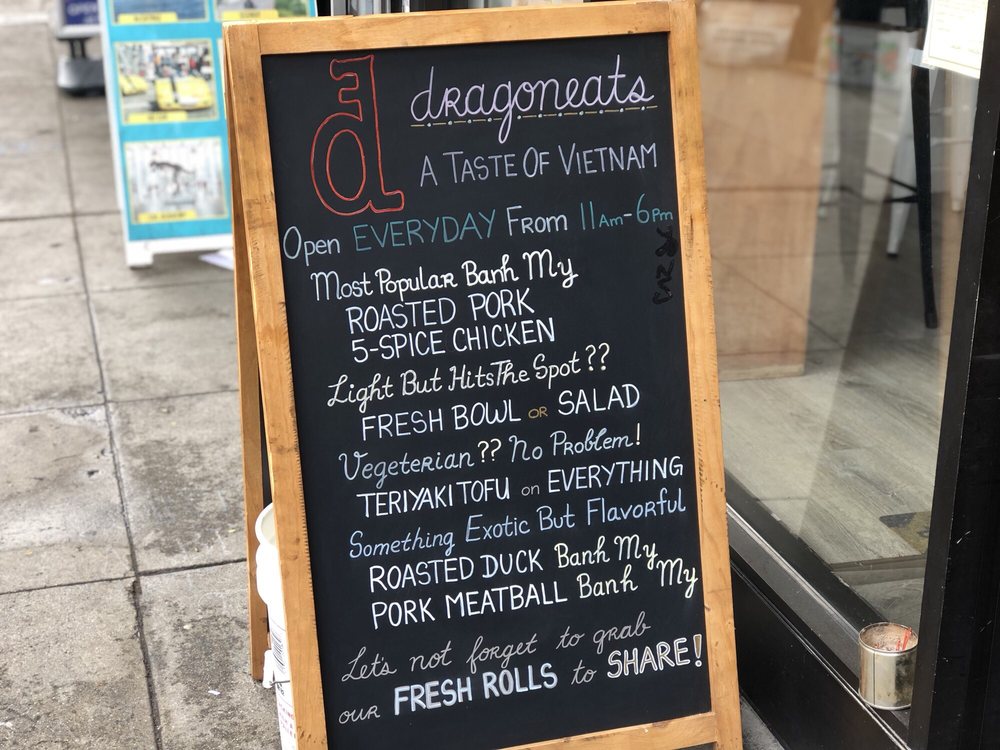 dragoneats
A TASTE OF VIETNAM
Open EVERYDAY From 11Am-6Pm
Most Popular Banh My
ROASTED PORK
5-SPICE CHICKEN
Light But Hits The Spot ??
FRESH BOWL OR SALAD
Vegeterian ?? No Problem!
TERIYAKI TOFU on EVERYTHING
Something Exotic But Flavorful
ROASTED DUCK Banh My
PORK MEATBALL Banh My
Let's not forget to grab
our FRESH ROLLS to SHARE!